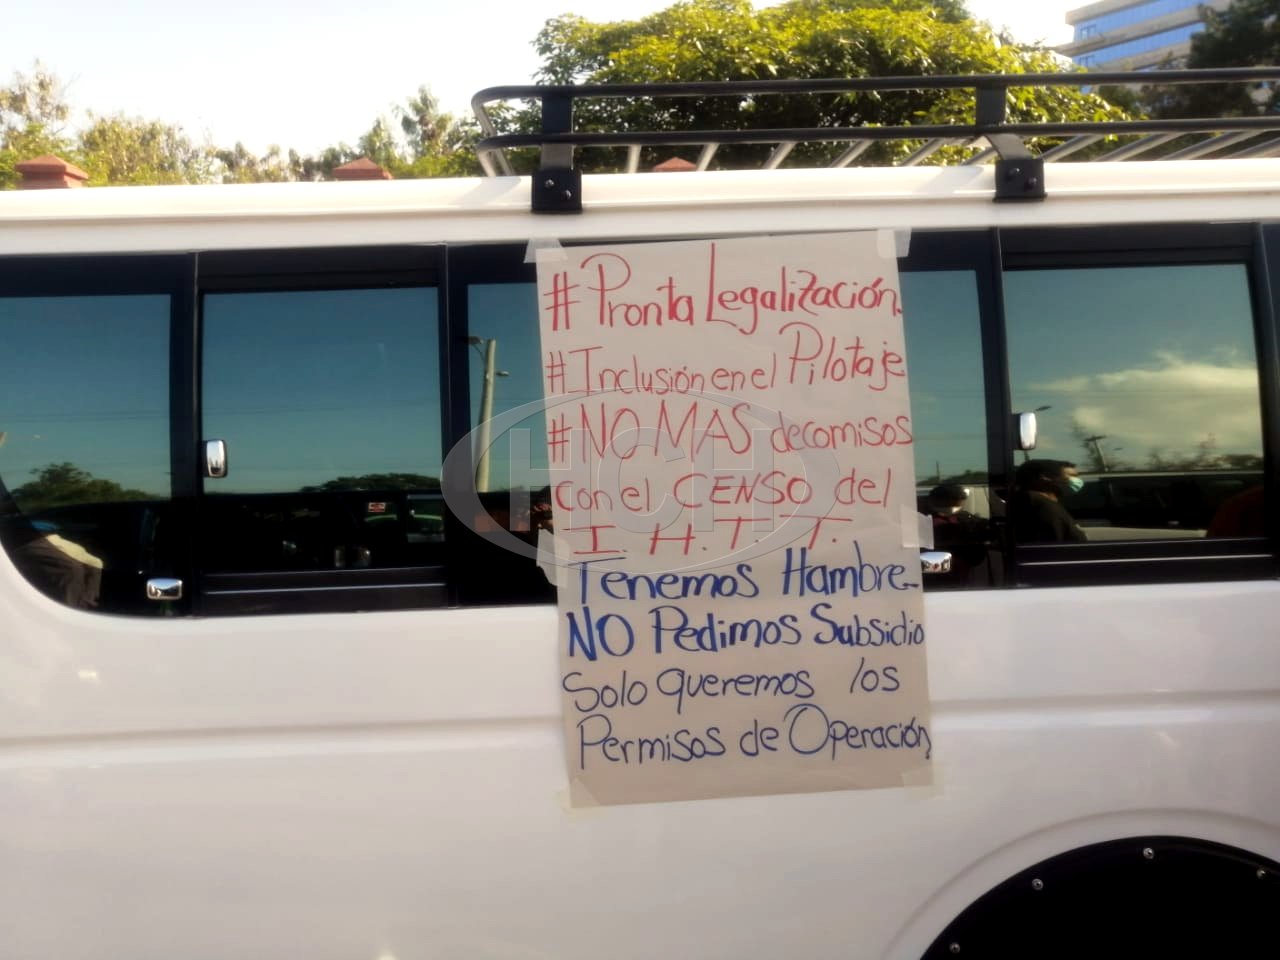 #Pronta Legalización.
#Inclusión en el Pilotaje
#NO MAS decomisos
con el CENSO del
I. H. T. T.
Tenemos Hambre-
NO Pedimos Subsidio
Solo queremos los
Permisos de Operación,
HCH